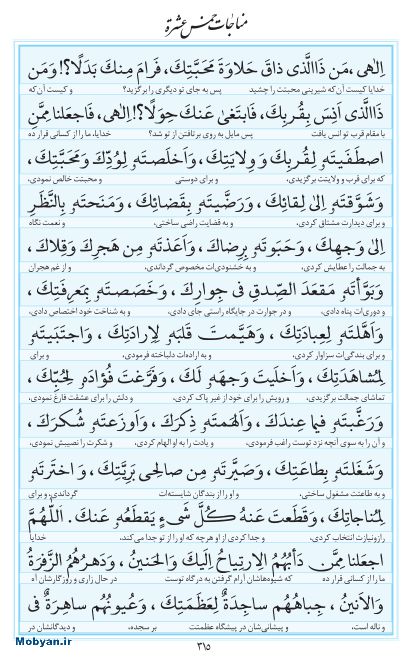 مناجات خمس عشرة
اِلٰهى ،مَن ذَاالَّذى ذاقَ حَلاوَةَ مَحَبَّتِكَ، فَرامَ مِنكَ بَدَلًا؟! وَمَن
خدایا کیست آن‌که شیرینی محبتت را چشید پس به جای تو دیگری را برگزید؟ و کیست آن‌که
ذَاالَّذى اَنِسَ بِقُربِكَ، فَابتَغىٰ عَنكَ حِوَلًا؟! اِلٰهى، فَاجعَلنا مِمَّنِ
با مقام قرب تو انس یافت پس مایل به روی برتافتن از تو شد؟ خدایا، ما را از کسانی قرار ده
اصطَفَيتَهو لِقُربِكَ وَ وِلايَتِكَ، وَاَخلَصتَهو لِوُدِّكَ وَمَحَبَّتِكَ،
که برای قرب و ولایتت برگزیدی، و برای دوستی و محبتت خالص نمودی،
وَشَوَّقتَهو اِلىٰ لِقائِكَ، وَرَضَّيتَهو بِقَضائِكَ، وَمَنَحتَهو بِالنَّظَرِ
و برای دیدارت مشتاق کردی، و به قضایت راضی ساختی، و نعمت نگاه
اِلىٰ وَجهِكَ، وَحَبَوتَهو بِرِضاكَ، وَاَعَذتَهو مِن هَجرِكَ وَقِلاكَ،
به جمالت را عطایش کردی، و به خشنودی‌ات مخصوص گرداندی، و از غم هجران
وَبَوَّأتَهو مَقعَدَ الصِّدقِ فى جِوارِكَ، وَخَصَصتَهو بِمَعرِفَتِكَ،
و دوری‌ات پناه دادی، و در جوارت در جایگاه راستی جای دادی، و به شناخت خود اختصاص دادی،
وَاَهَّلتَهو لِعِبادَتِكَ، وَهَيَّمتَ قَلبَهو لِاِرادَتِكَ، وَاجتَبَيتَهو
و برای بندگی‌ات سزاوار کردی، و به اراده‌ات دلباخته فرمودی، و برای
لِمُشاهَدَتِكَ، وَاَخلَيتَ وَجهَهو لَكَ، وَفَرَّغتَ فُؤادَهو لِحُبِّكَ،
تماشای جمالت برگزیدی، و رویش را برای خود از غیر پاک کردی، و دلش را برای عشقت فارغ نمودی،
وَرَغَّبتَهو فيما عِندَكَ، وَاَلهَمتَهو ذِكرَكَ، وَاَوزَعتَهو شُكرَكَ،
و آن را به سوی آنچه نزد توست راغب فرمودی، و یادت را به او الهام کردی، و شکرت را نصیبش نمودی،
وَشَغَلتَهو بِطاعَتِكَ، وَصَيَّرتَهو مِن صالِحى بَرِيَّتِكَ، وَ اختَرتَهو
و به طاعتت مشغول ساختی، و او را از بندگان شایسته‌ات گرداندی، و برای
لِمُناجاتِكَ، وَقَطَعتَ عَنهُ كُلَّ شَىءٍ يَقطَعُهو عَنكَ. اَللّٰهُمَّ
رازونیازت انتخاب کردی، و جدا کردی از او هرچه که او را از تو جدا می‌کند، خدایا
اجعَلنا مِمَّن دَأبُهُمُ الاِرتِياحُ اِلَيكَ وَالحَنينُ، وَدَهرُهُمُ الزَّفرَةُ
ما را از کسانی قرار ده که شیوه‌هاشان آرام گرفتن به درگاه توست در حال زاری و روزگارشان آه
وَالاَنينُ، جِباهُهُم ساجِدَةٌ لِعَظَمَتِكَ، وَعُيونُهُم ساهِرَةٌ فى
و ناله است، و پیشانی‌شان در پیشگاه عظمتت بر سجده، و دیدگانشان در
Mobyan.ir
٣١٥